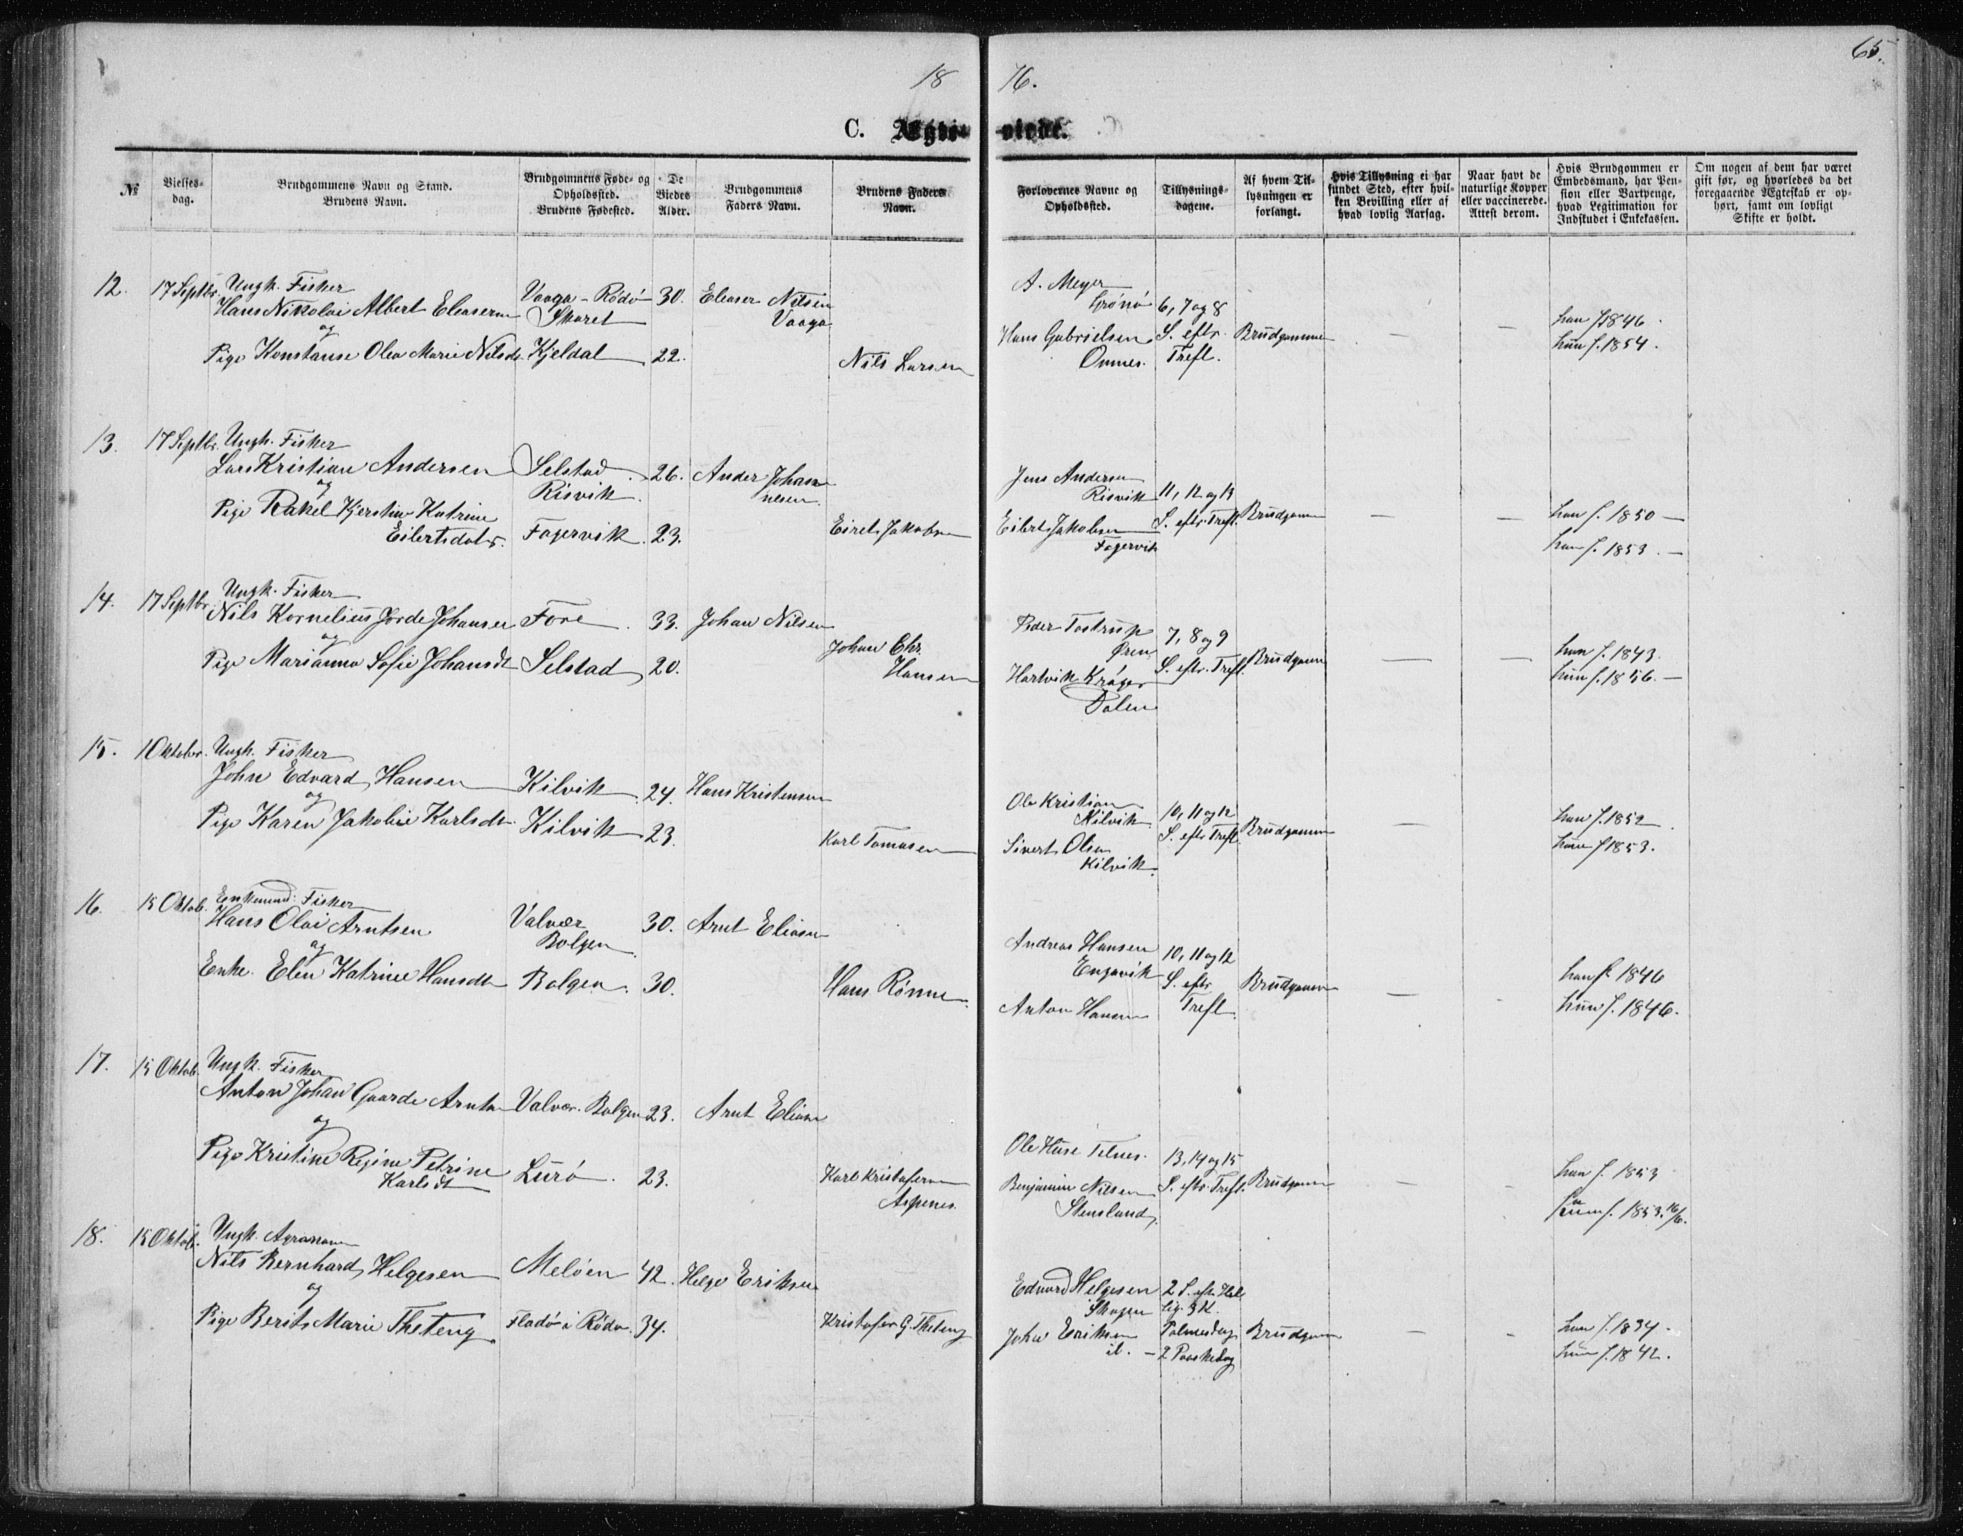 65.
18 76.
C. Ægte- viede.
№
Vielses-
dag.
Brudgommens Navn og Stand.
Brudens Navn.
Brudgommens Føde- og
Opholdssted.
Brudens Fødested.
De
Viedes
Alder.
Brudgommens
Faders Navn.
Brudens Faders
Navn.
Forlovernes Navne og
Opholdssted.
Tillysnings-
dagene.
Af hvem Til-
lysningen er
forlangt.
Hvis Tillysning ei har
fundet Sted, efter hvil-
ken Bevilling eller af
hvad lovlig Aarsag.
Naar havt de
naturlige Kopper
eller vaccinerede.
Attest derom.
Hvis Brudgommen er
Embedsmand, har Pen-
sion eller Vartpenge,
hvad Legitimation for
Indskudet i Enkekassen.
Om nogen af dem har været
gift før, og hvorledes da det
foregaaende Ægteskab er op-
hørt, samt om lovligt
Skifte er holdt.
12. 17 Septbr. Ungk. Fisker
Hans Nikolai Albert Eleasern
og
Pige Konstanse Olea Marie Nilsdt.
Vaaga - Rödö
Skaret
Kjeldal
30.
22.
Eleaser Nilsen
Vaaga
Nils Larsen
A. Meyer
Grönö
Hans Gabrielsen
Onnes.
6, 7 og 8
S. eftr.
Trefl.
Brudgommen
—
—
han f 1846.
hun f. 1854.
13. 17 Septbr. Ungk. Fisker
Lars Kristian Andersen
og
Pige Rakel Kjerstine Katrine
Eilertsdatr.
Selstad
Risvik.
Fagervik.
26.
23.
Ander Johan
nesen.
Eirets Jakobsen
Jens Andersen
Risvik
Eilert Jakobsen
Fagervik
11, 12 og 13
S. eftr. Trefl.
Brudgomm
—
—
han f. 1850 —
hun f. 1853. —
14. 17 Septbr. Ungk. Fisker
Nils Kornelius Jorde Johansen
og
Pige Marianna Sofie Johansdt
Fore
Selstad
33.
20.
Johan Nilsen
Johan Chr.
Hansen
Peder Tostrup
Øren
Hartvik Kröger
Dalen
7, 8 og 9
S. eftr. Trefl.
Brudgomm
—
—
han f. 1843.
hun f. 1856. —
15. 1 Oktobr. Ungk. Fisker
John Edvard Hansen
og
Pige Karen Jakobie Karlsdt.
Kilvik
Kilvik
24.
23.
Hans Kristensen
Karl Tomasen
Ole Kristian
Kilvik
Sivert Olsen
Kilvik.
10, 11 og 12
S. eftr Trefl.
Brudgomm
—
—
han f. 1852.
hun f 1853.
16. 15 Oktob. Enkemand. Fisker
Hans Olai Arntsen
og
Enke. Elen Katrine Hansdt
Valvær
Bolgen
Bolgen.
30.
30.
Arnt Eliasen
Hans Rönne
Andreas Hansen
Engavik
Anton Hansen
10, 11 og 12
S. eftr
Trefl.
Brudgomm
—
-
han f. 1846
hun f. 1846.
17. 15 Oktob. Ungk. Fisker
Anton Johan Gaarde Arnts
og
Pige Kristine Regine Petrine
Karlsdt
Valvær. Bolgen
Lurö.
23.
23.
Arnt Eliasen
Karl Kristofersen
Aspenes.
Ole Huse Telnes.
Benjamin Nilsen
Stensland,
13, 14 og 15
S. eftr. Trefl.
Brudgomm
—
-
han f. 1853
hun f. 1853. 16/6.
18. 15 Oktob. Ungk. Agronom
Nils Bernhard Helgesen
og
Pige Berits Marie Theteng
Melöen
Fladö i Rödö.
42.
34.
Helge Eriksen
Kristofer G. Theteng
Edvard Helgesen
Skagen
John Eriksen
ib.
2 S. eftr Hel
lig. 3 K.
Palmesdag
- 2 Paaskedag
Brudgomm
—
-
han f. 1834.
hun f. 1842.